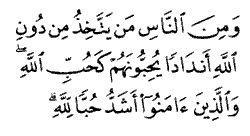 وَمِنَ ٱلنَّاسِ مَن يَتَّخِذُ مِن دُونِ
ٱللَّهِ أَندَادًا يُحِبُّونَهُمْ كَحُبِّ ٱللَّهِ ۖ
وَٱلَّذِينَ ءَامَنُوٓا۟ أَشَدُّ حُبًّا لِّلَّهِ ۗ